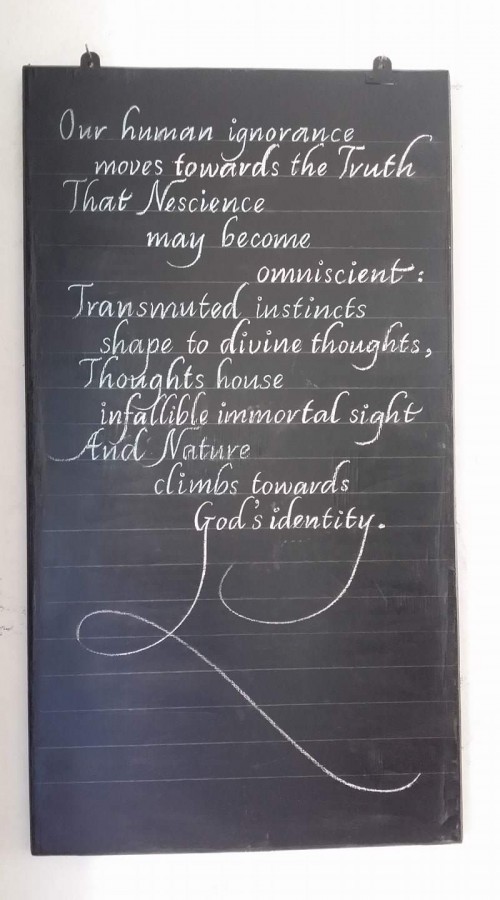 Our human ignorance
moves towards the Truth
That Nescience
may become
omniscient:
Transmuted instincts
shape to divine thoughts,
Thoughts house
infallible immortal sight
And Nature
climbs towards
God's identity.